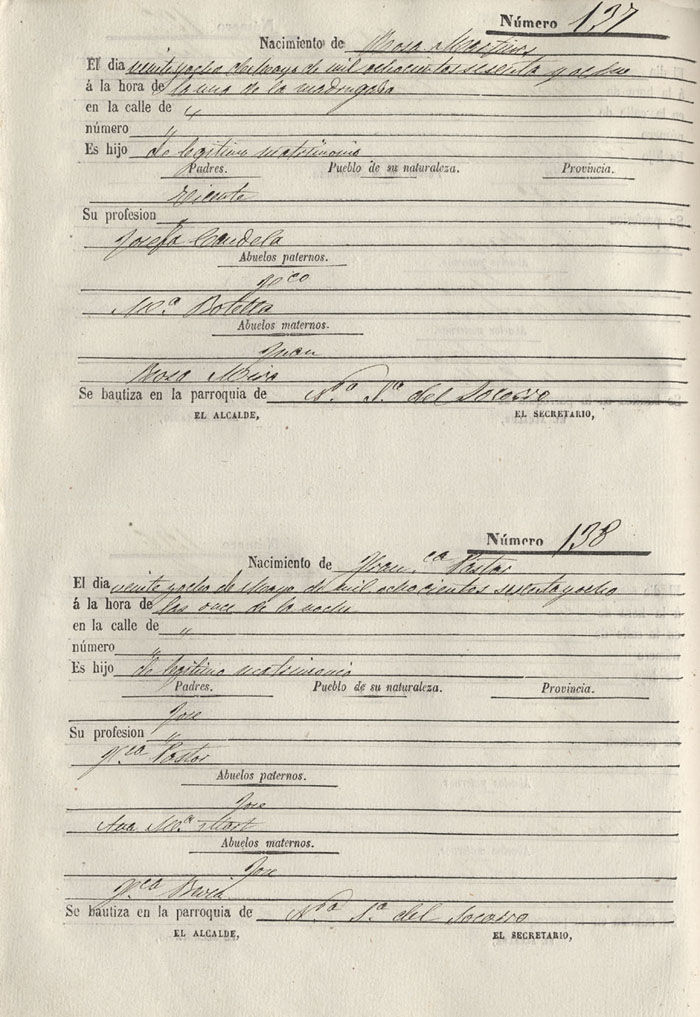 Número 137
Nacimiento de Rosa Martinez
El dia veinte y ocho de Mayo de mil ochocientos sesenta y ocho
á la hora de la una de la madrugada
en la calle de "
número "
Es hijo de legitimo matrimonio
Padres. Pueblo de su naturaleza. Provincia.
Vicente
Su profesion "
Josefa Candela
Abuelos paternos.
Fco
Mª Botella
Abuelos maternos.
Juan
Rosa Mira
Se bautiza en la parroquia de Nª Sª del Socorro
EL ALCALDE, EL SECRETARIO,
Número 138
Nacimiento de Franca Pastor
El dia veinte y ocho de Mayo de mil ochocientos sesenta y ocho
á la hora de las once de la noche
en la calle de "
número "
Es hijo de legitimo matrimonio
Padres. Pueblo de su naturaleza. Provincia.
Jose
Su profesion "
Fca Pastor
Abuelos paternos.
Jose
Ana Mª
Abuelos maternos.
Jose
Fca
Se bautiza en la parroquia de Nª Sª del Socorro
EL ALCALDE, EL SECRETARIO,